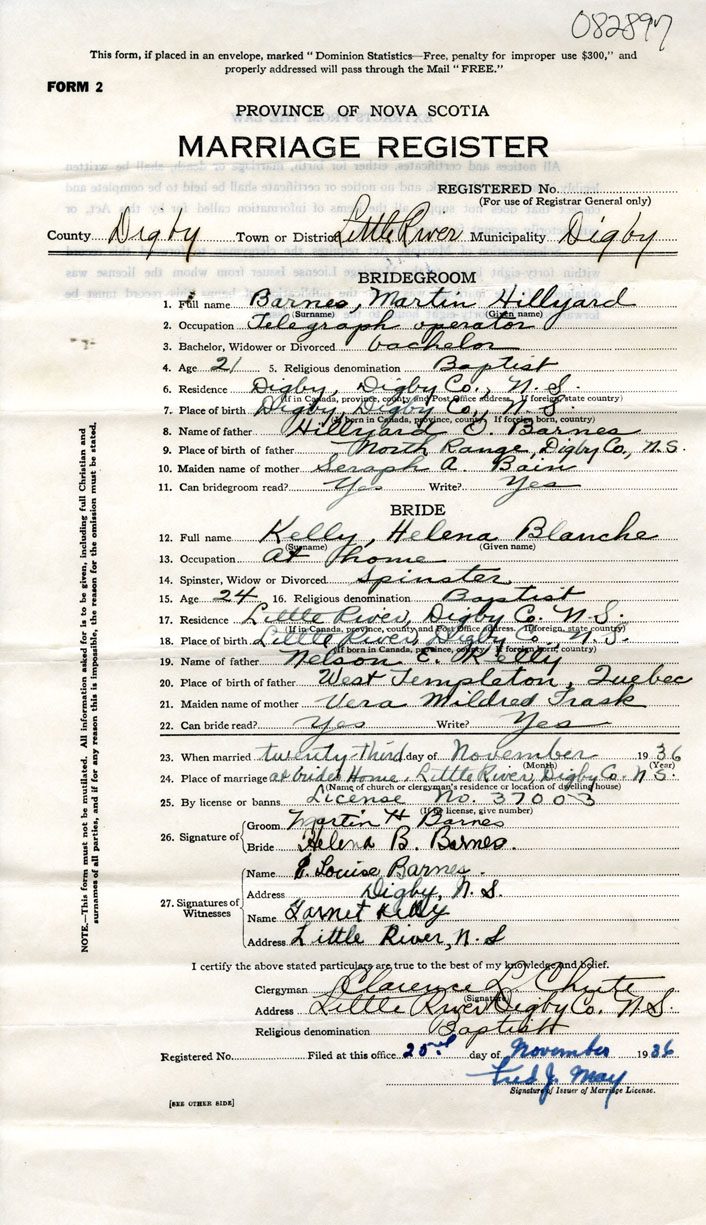 082897
This form, if placed in an envelope, marked "Dominion Statistics—Free, penalty for improper use $300," and
properly addressed will pass through the Mail "FREE."
FORM 2
PROVINCE OF NOVA SCOTIA
MARRIAGE REGISTER
REGISTERED No.
(For use of Registrar General only)
County Digby Town or District Little River Municipality Digby
BRIDEGROOM
1. Full name Barnes, Martin Hillyard
(Surname) (Given name)
2. Occupation Telegraph operator
3. Bachelor, Widower or Divorced bachelor
4. Age 21 5. Religious denomination Baptist
6. Residence Digby, Digby Co., N. S.
(If in Canada, province, county and Post Office address, If foreign, state country)
7. Place of birth Digby, Digby Co., N. S.
(If born in Canada, province, county, If foreign born, country)
8. Name of father Hillyard Barnes
9. Place of birth of father North Range, Digby Co., N. S.
10. Maiden name of mother Seraph A. Bain
11. Can bridegroom read? Yes Write? Yes
BRIDE
12. Full name Kelly, Helena Blanche
(Surname) (Given name)
13. Occupation At home
14. Spinster, Widow or Divorced Spinster
15. Age 24 16. Religious denomination Baptist
17. Residence Little River, Digby Co. N. S.
(If in Canada, province, county and Post Office address, If foreign, state country)
18. Place of birth Little River, Digby Co., N. S.
(If born in Canada, province, county, If foreign born, country)
19. Name of father Nelson E. Kelly
20. Place of birth of father West Templeton, Quebec
21. Maiden name of mother Vera Mildred Trask
22. Can bride read? Yes Write? Yes
23. When married twenty-third day of November 1936
(Month) (Year)
24. Place of marriage at brides Home, Little River, Digby Co. N. S.
(Name of church or clergyman's residence or location of dwelling house)
25. By license or banns License No. 37003
(If by license, give number)
26. Signature of Groom Martin H Barnes
Bride Helena B. Barnes.
27. Signatures of Witnesses Name Louise Barnes.
Address Digby, N. S.
Name Garnet Kelly
Address Little River, N. S
I certify the above stated particulars are true to the best of my knowledge and belief.
Clergyman Clarence L. Chute
(Signature)
Address Little River Digby Co. N. S.
Religious denomination Baptist
Registered No. Filed at this office day of November 1936
Fred J. May
Signature of Issuer of Marriage License.
[SEE OTHER SIDE]
NOTE.—This form must not be mutilated. All information asked for is to be given, including full Christian and
surnames of all parties, and if for any reason this is impossible, the reason for the omission must be stated.